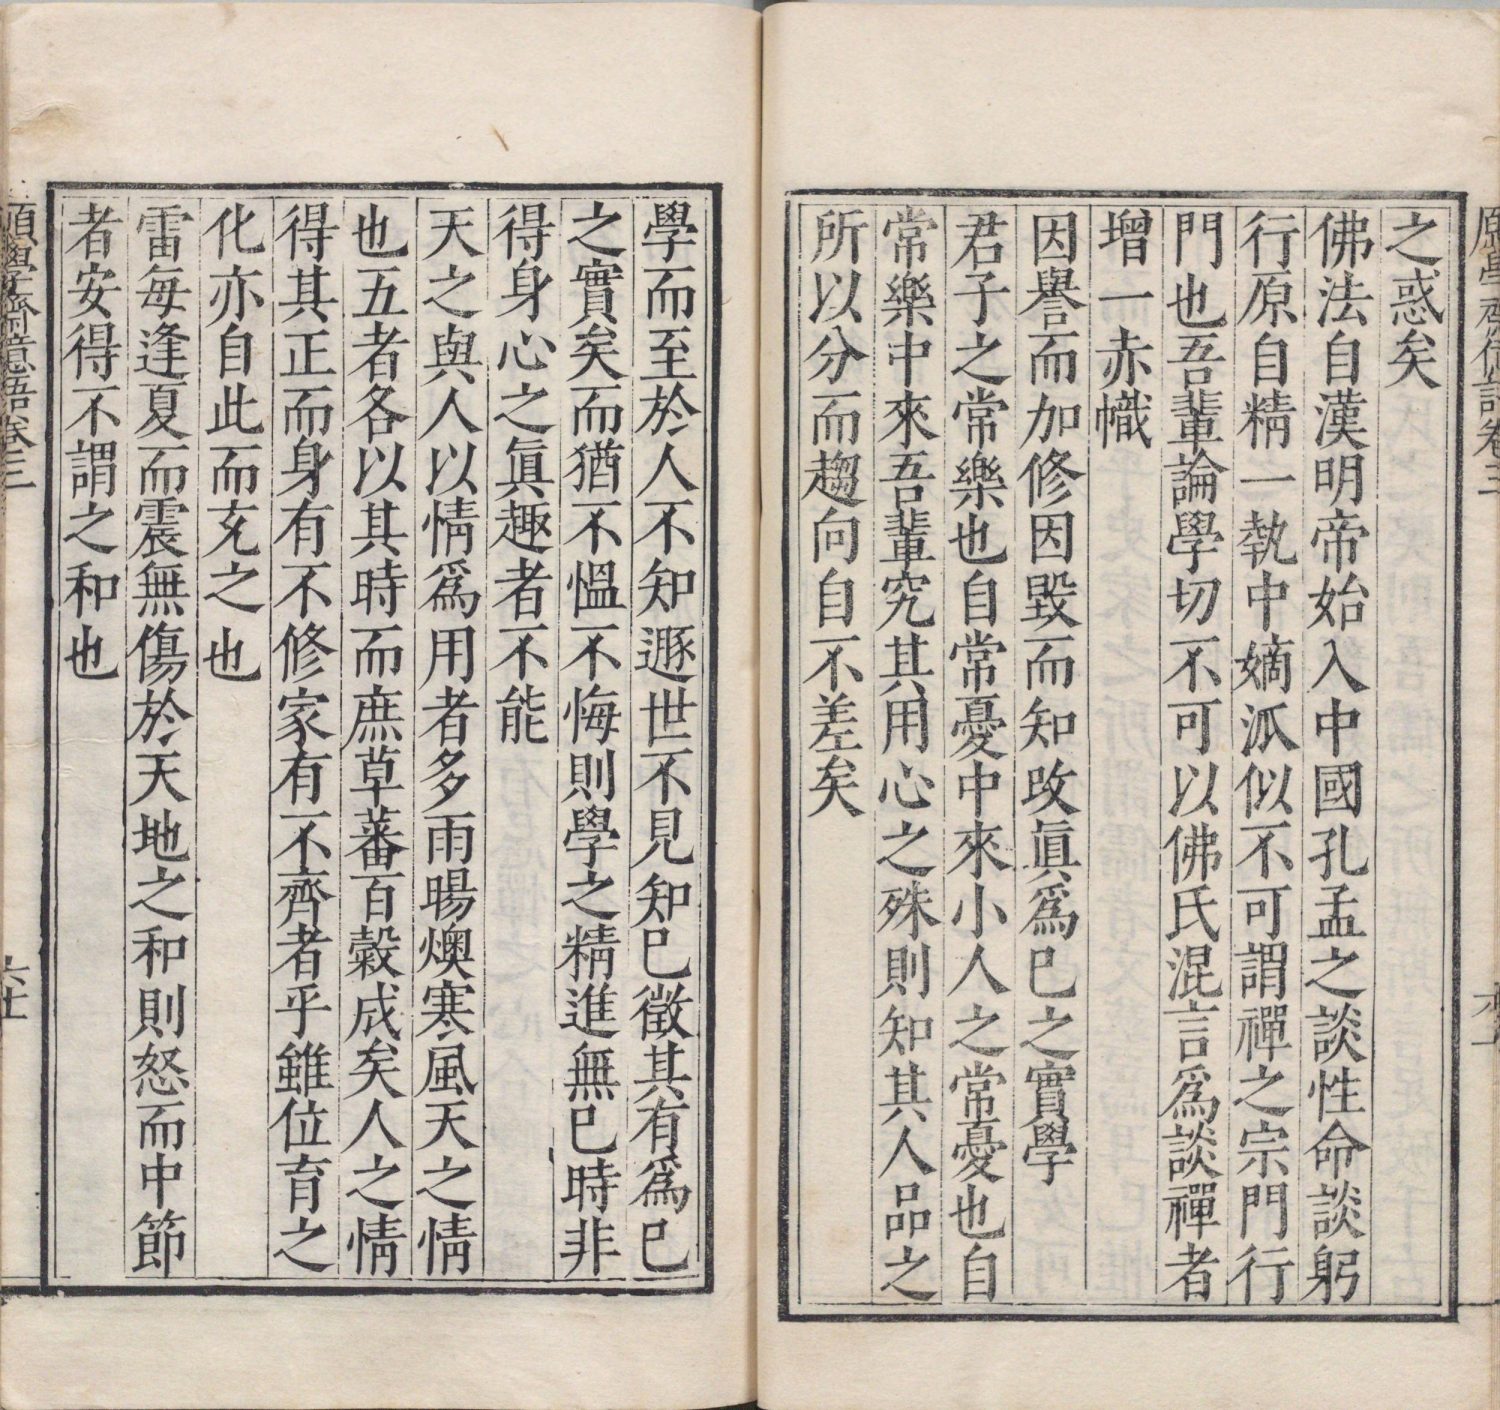 之惑矣
佛法自漢明帝始入中國孔孟之談性命談躬
行原自精一執中嫡派似不可謂禪之宗門行
門也吾輩論學切不可以佛氏混言爲談禪者
增一赤幟
因譽而加修因毀而知改眞爲已之實學
君子之常樂也自常憂中來小人之常憂也自
常樂中來吾輩究其用心之殊則知其人品之
所以分而趨向自不差矣
學而至於人不知遯世不見知已徵其有爲已
之實矣而猶不慍不悔則學之精進無已時非
得身心之眞趣者不能
天之與人以情爲用者多雨暘燠寒風天之情
也五者各以其時而庶草蕃百穀成矣人之情
得其正而身有不修家有不齊者乎雖位育之
化亦自此而充之也
雷每逢夏而震無傷於天地之和則怒而中節
者安得不謂之和也